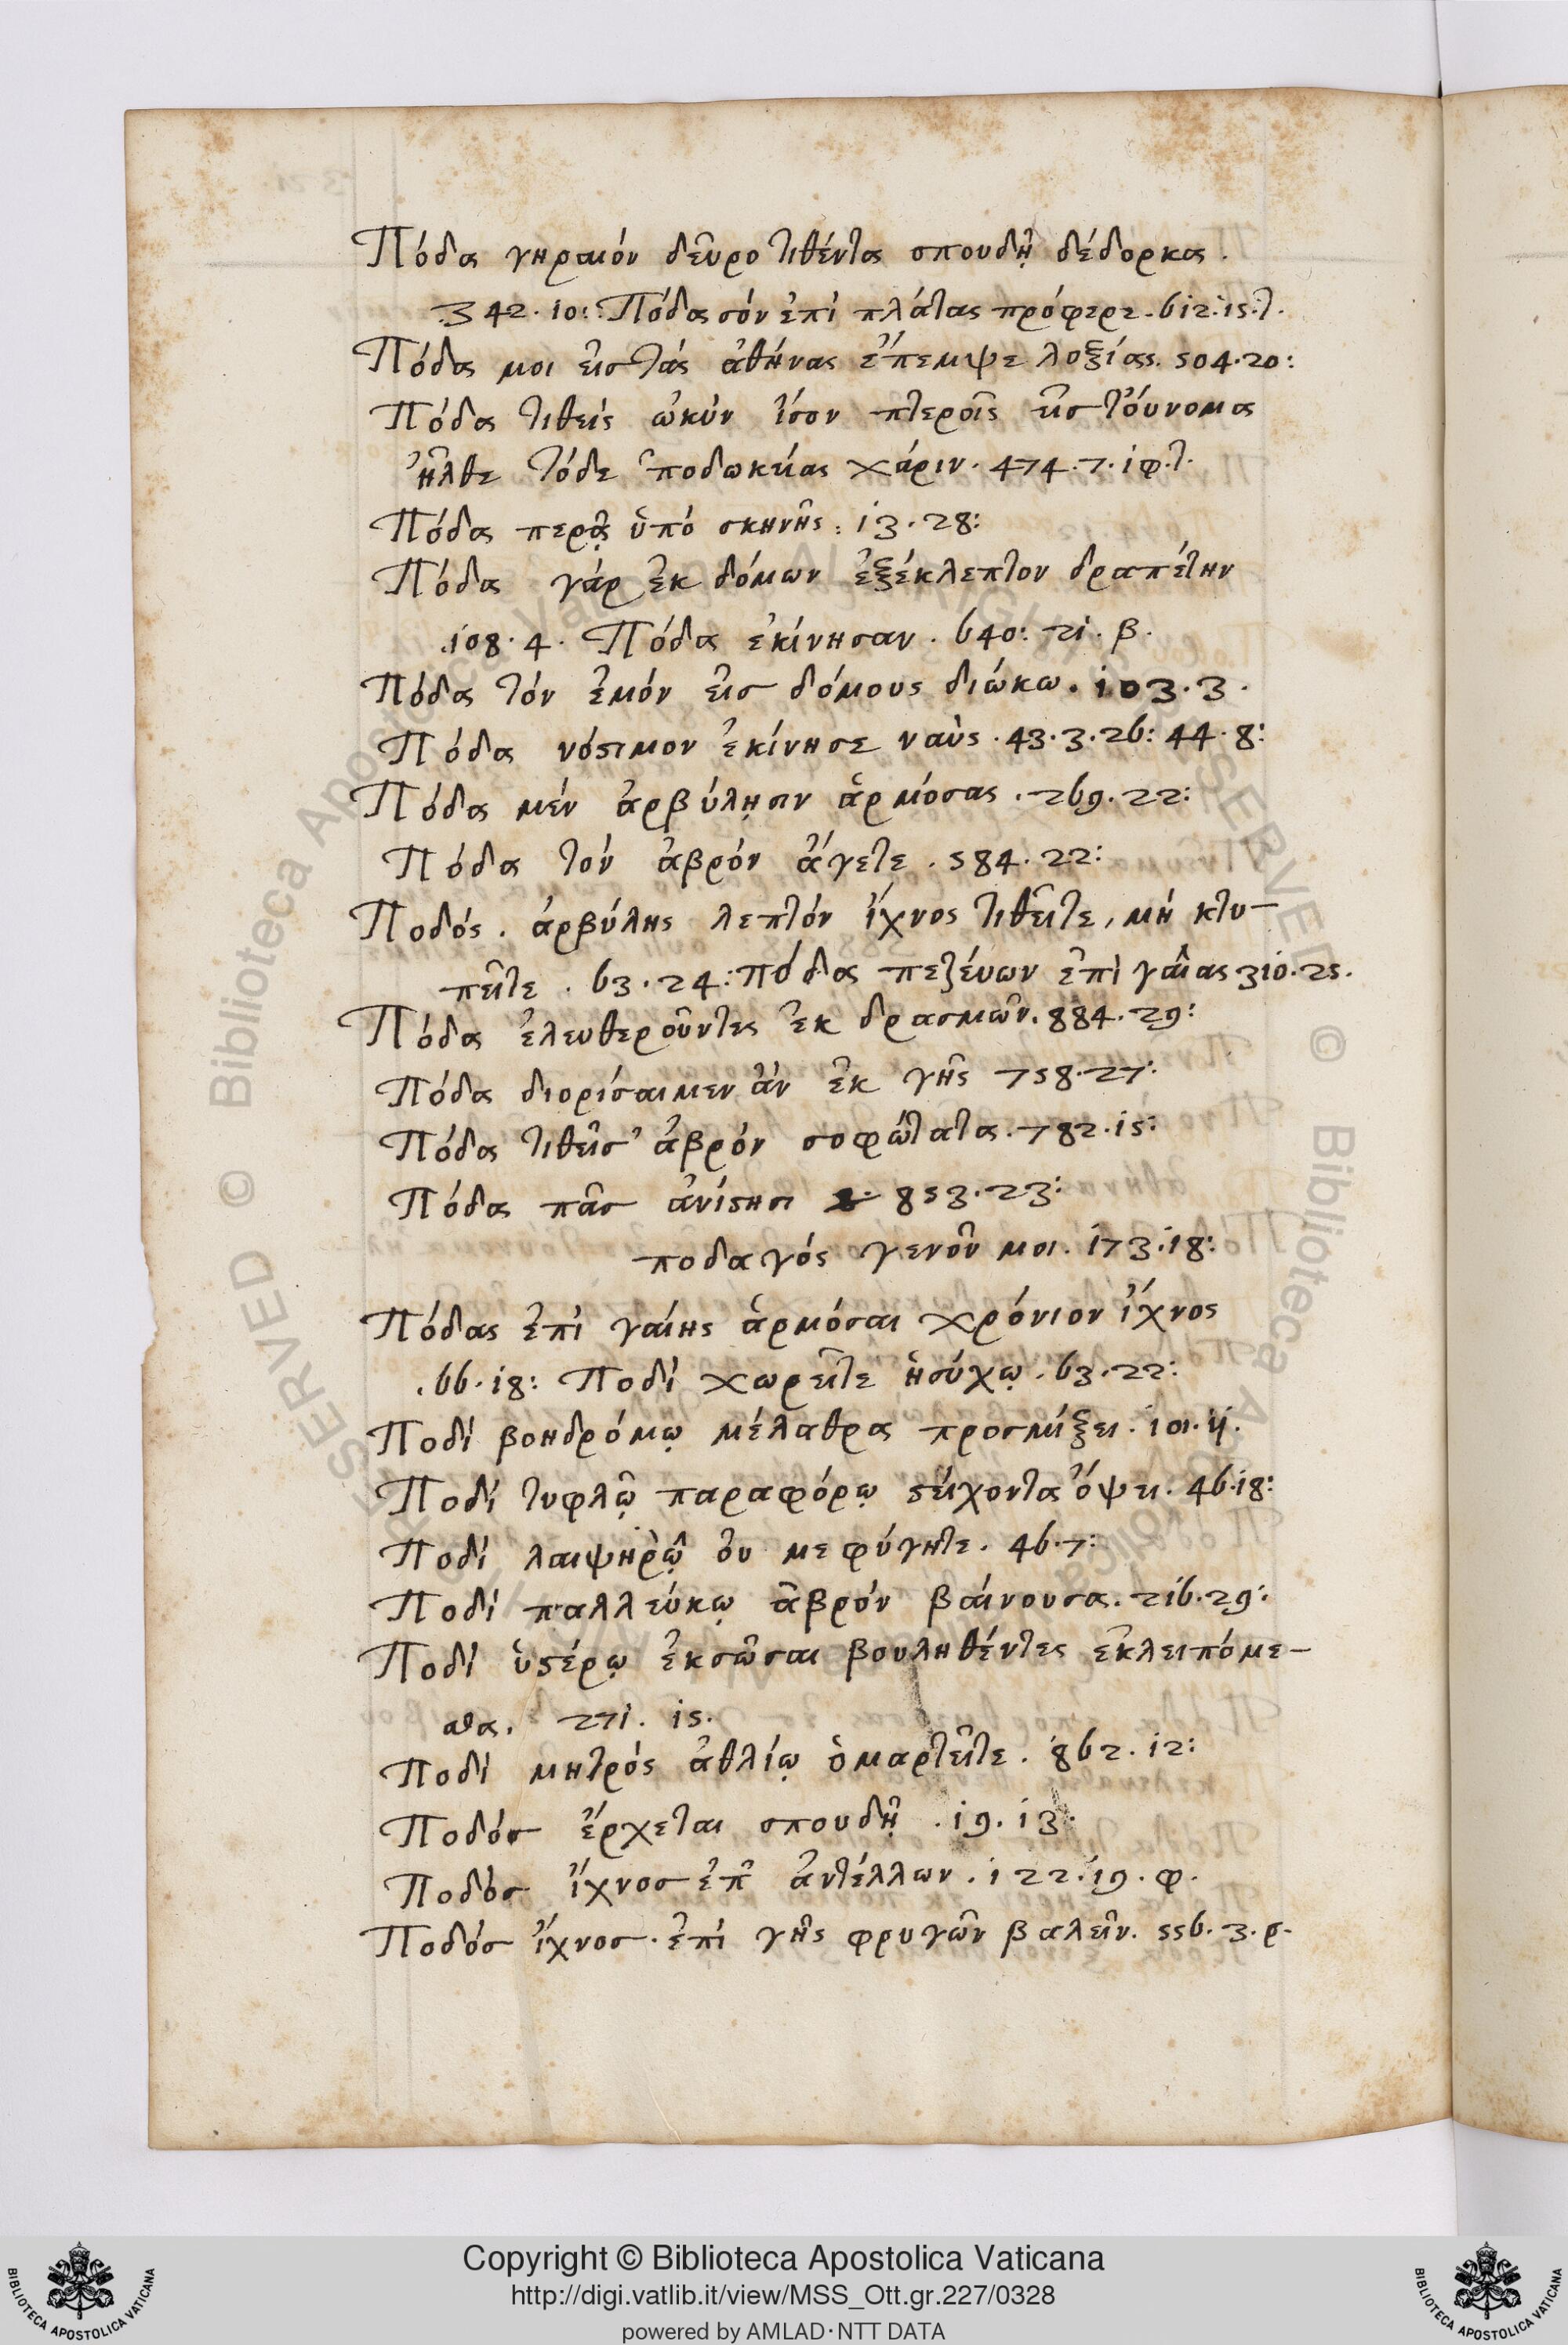 Πόδα γηραιόν δεῦρο τιθέντα σπουδῇ δέδορκα.
342.10: Πόδα σόν ἐπί πλάτας πρόφερε. 612.15.τ.
Πόδα μοι εἰσ τάς ἀθήνας ἔπεμψε λοξίας. 504.20:
Πόδα τιθείς ὠκύν ἴσον πτεροῖς εἷς τὄυνομα
ἦλθε τόδε ποδωκείας χάριν. 474.7.ἰφ.τ.
Πόδα περᾷς ὑπό σκηνῆς: 13.28:
Πόδα γάρ ἐκ δόμων ἐξέκλεπτον δραπέτην
108.4. Πόδα ἐκίνησαν. 640: 21. β.
Πόδα τόν ἐμόν εἰσ δόμους διώκω. 103.3.
Πόδα νόστιμον ἐκίνησε ναὺς. 43.3.26: 44.8:
Πόδα μέν ἀρβύλῃσιν ἁρμόσας. 269.22:
Πόδα τόν ἁβρόν ἄγετε. 584.22:
Ποδός. ἀρβύλης λεπτόν ἴχνος τιθεῖτε, μή κτυ-
πεῖτε. 63.24: πόδα πεζεύων ἐπὶ γαίας 310.25.
Πόδα ἐλευθεροῦντες ἐκ δρασμῶν. 884.29:
Πόδα διορίσαιμεν ἄν ἐκ γῆς 758.27:
Πόδα τιθεῖσ' ἁβρόν σοφώτατα. 782.15:
Πόδα πᾶσ ἀνίστησι 853.23:
ποδαγός γενοῦ μοι. 173.18:
Πόδας ἐπί γαίης ἁρμόσαι χρόνιον ἴχνος
.66.18: Ποδί χωρεῖτε ἡσύχῳ. 63.22:
Ποδί βοηδρόμῳ μέλαθρα προσμίξει. 101.11.
Ποδί τυφλῷ παραφόρῳ στείχοντα ὄψει. 46.18:
Ποδί λαιψηρῷ ὀυ με φύγητε. 46.7:
Ποδί παλλεύκῳ ἁβρόν βαίνουσα. 216.29:
Ποδί ὑστέρῳ ἐκσῶσαι βουληθέντες ἐκλειπόμε-
θα. 271. 15.
Ποδί μητρός ἀθλίῳ ὁμαρτεῖτε. 862.12:
Ποδόσ ἔρχεται σπουδῇ. 19.13.
Ποδόσ ἴχνοσ ἐπ ἀντέλλων. 122.19.φ.
Ποδόσ ἴχνοσ. ἐπί γῆς φρυγῶν βαλεῖν. 556.3.ρ.
Copyright © Biblioteca Apostolica Vaticana
http://digi.vatlib.it/view/MSS_Ott.gr.227/0328
powered by AMLAD·NTT DATA